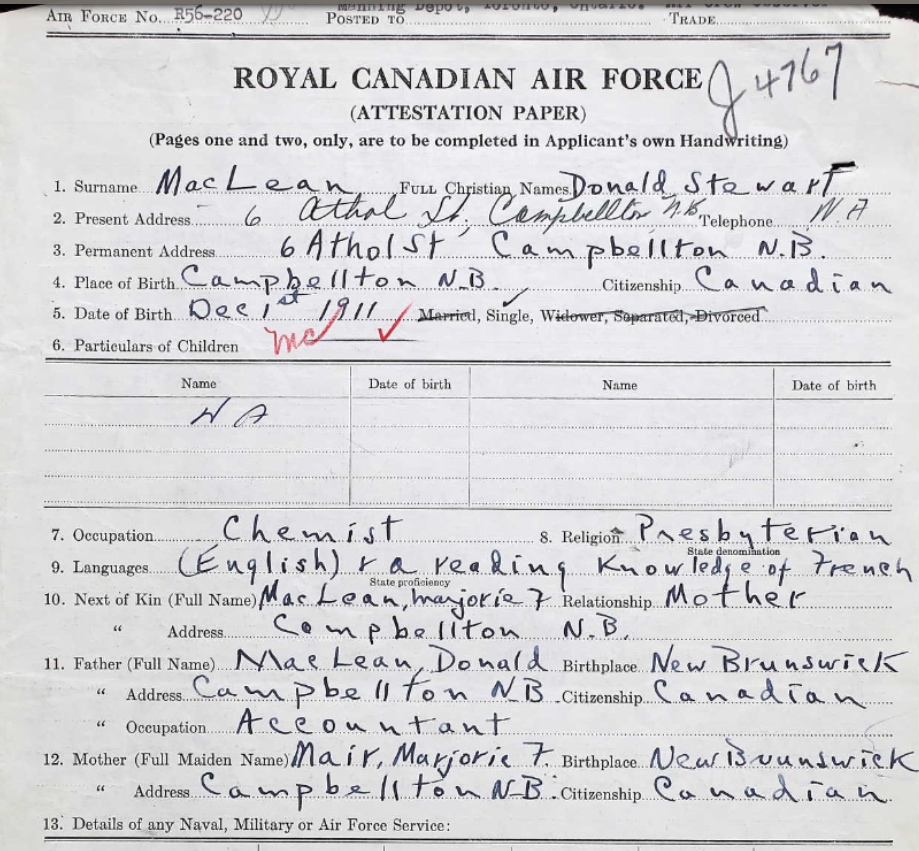 AIR FORCE No. R56-220 POSTED TO Manning Depot, Toronto, Ontario. TRADE Air Crew Observer
J 4767
ROYAL CANADIAN AIR FORCE
(ATTESTATION PAPER)
(Pages one and two, only, are to be completed in Applicant's own Handwriting)
1. Surname MacLean FULL Christian Names Donald Stewart
2. Present Address 6 Athol St, Campbellton N.B. Telephone N A
3. Permanent Address 6 Athol St Campbellton N.B.
4. Place of Birth Campbellton N.B. Citizenship Canadian
5. Date of Birth Dec 1st 1911 Married, Single, Widower, Separated, Divorced
6. Particulars of Children
Name Date of birth Name Date of birth
N A
7. Occupation Chemist 8. Religion Presbyterian
State denomination
9. Languages (English) + a reading Knowledge of French
State proficiency
10. Next of Kin (Full Name) MacLean, Marjorie F Relationship Mother
" Address Campbellton N.B.
11. Father (Full Name) MacLean, Donald Birthplace New Brunswick
" Address Campbellton NB Citizenship Canadian
" Occupation Accountant
12. Mother (Full Maiden Name) Mair, Marjorie F. Birthplace New Brunswick
" Address Campbellton NB Citizenship Canadian
13. Details of any Naval, Military or Air Force Service: